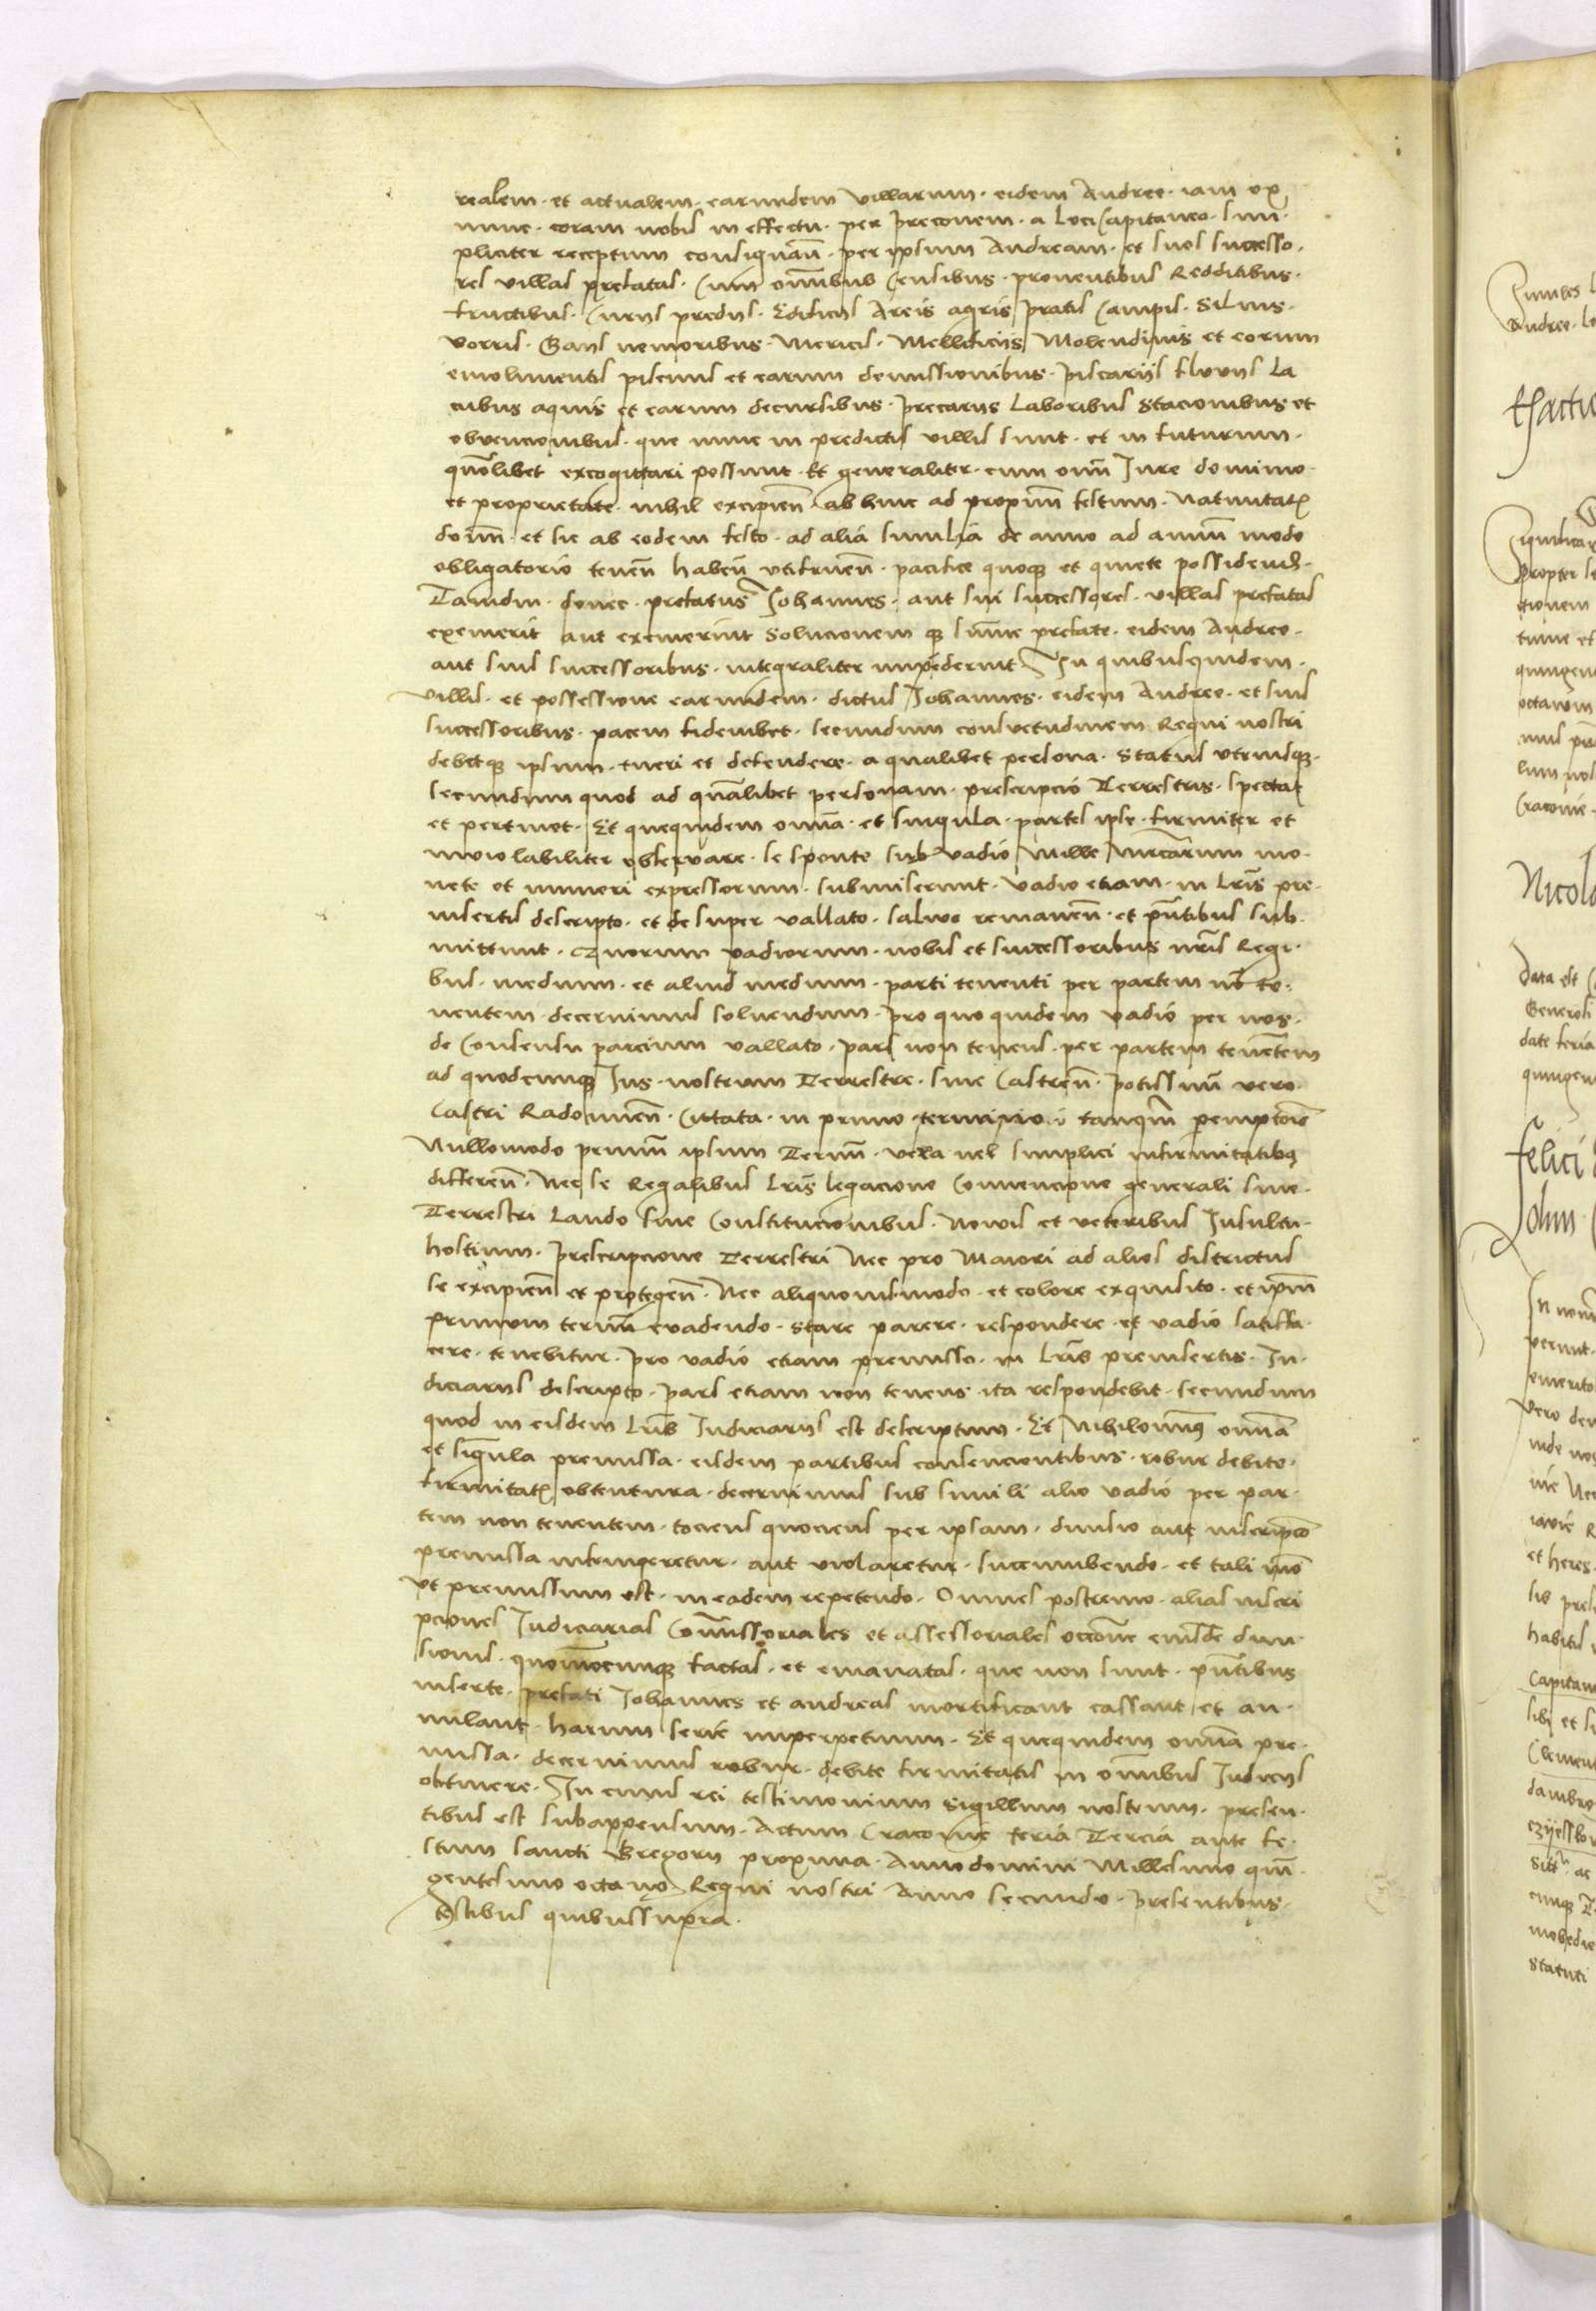 realem · et actualem · earundem villarum · eidem Andree · iam ex
nunc · coram nobis in effectu · per preconem · a loci Capitaneo · sim
pliciter receptum consignan̄ · per ipsum Andream · et suos successo ·
res villas prefatas · Cum om̄ibus Censibus · proventibus Redditibus ·
fructibus · Curiis prediis · Edificiis Areis agris pratis Campis · Siluis ·
borris · Gaiis nemoribus · Mericis · Mellificiis Molendinis et eorum
emolimentis piscinis et earum demissionibus · piscariis fluviis la
cubus aquis et earum decursibus · precariis laboribus stacionibus et
obvencionibus · que nunc in predictis villis sunt · et in futurum ·
quōlibet excogittari possunt · Et generaliter · cum om̄i Iure dominio ·
et proprietate · nihil excipien̄ · ab hinc ad propim̄ festum · Natiuitatis
domī · et sic ab eodem festo · ad alia similia de anno ad annū modo
obligatorio tenen̄ haben̄ utifruen̄ · pacifice quoque et quiete possidend̄ ·
Tamdiu · donec · prefatus Johannes · aut sui successores · villas prefatas
exemerit aut exemerint solucionem que sūme prefate · eidem Andree ·
aut suis successoribus · integraliter impēderint In quibusquidem ·
villis · et possessione earundem · dictus Johannes · eidem Andree · et suis
successoribus · pacem fidemhet · secundum consvetudinem Regni nostri
debetque ipsum · tueri et defendere · a qualibet persona · status utriusque ·
secundum quod ad qūalibet personam · prescripcio Terrestris · spectat
et pertinet · Et quequidem om̄ia · et singula · partes ipse · firmiter et
inviolabiliter observare · se sponte sub vadio Mille mrcarum mo ·
nete et numeri expressorum · submiserunt · vadio etiam · in Lr̄is pre ·
insertis descripto · et desuper vallato · salvo remanen̄ · et pn̄tibus sub ·
mittunt · quorum vadiorum · nobis et successoribus nr̄is Regi ·
bus · medium · et aliud medium · parti tenenti per partem nō te ·
nentem · decernimus solvendum · pro quo quidem vadio per nos ·
de Consensu parcium vallato · pars non tenens · per partem tenētem
ad quodcunque Ius · nostrum Terrestre · sive Castren̄ · potissimū vero ·
Castri Radomien̄ · Cittata · in primo termino · tanq̄m peremptorie
Nullomodo premiū ipsum Termī · vera vel simplici infirmitatibus
differen̄ · Nec se Regalibus Lr̄is legacione Convencione generali sive ·
Terrestri Laudo sive Constitucionibus · Novis et veteribus Insultu ·
hostium · prescripcione Terrestri Nec pro Maiori ad alios districtus
se excipien̄ et protegen̄ · Nec aliquovismodo · et colore exquisito · et ipm̄
primum termī evadendo · stare parere · respondere · et vadio satisfa ·
cere · tenebitur · pro vadio etiam premisso · in Lr̄is preinsertis · Iu ·
diciariis descripto · pars etiam non tenens · ita respondebit · secundum
quod in eisdem Lr̄is Iudiciariis est descriptum · Et Nihilominus om̄ia
et sigula premissa · eisdem partibus consencientibus · robur debite ·
firmitatis obtentura · decernimus sub simili alio vadio per par ·
tem non tenentem · tociens quociens per ipsam · divisio aut inscripcō
premissa infringeretur · aut violaretur · succumbendo · et tali mō
ut premissum est · in eadem repetendo · Omnes postremo · alias inscri
pciones Iudiciarias Com̄issoriales et assessoriales occōne eiusdē divi ·
sionis · quomōcunque factas · et emanatas · que non sunt · pn̄tibus
inserte · prefati Johannes et andreas mortificant cassant et an ·
nulant · harum serie imperpetuum · Et quequidem om̄ia pre ·
missa · decernimus robur · debite firmitatis in om̄ibus Iudiciis
obtinere · In cuius rei testimonium sigillum nostrum · presen ·
tibus est subappensum · Actum Cracovie feria Tercia ante fe ·
stum sancti Gregorii proxima · Anno domini Millesimo quin̄ ·
gentesimo octavo Regni nostri Anno secundo · presentibus ·
testibus quibussupra ·
Andree
propter
Nicol
data est
Generosi
date feria
felici
vero
et heres
habitis
Capitan
Statuti